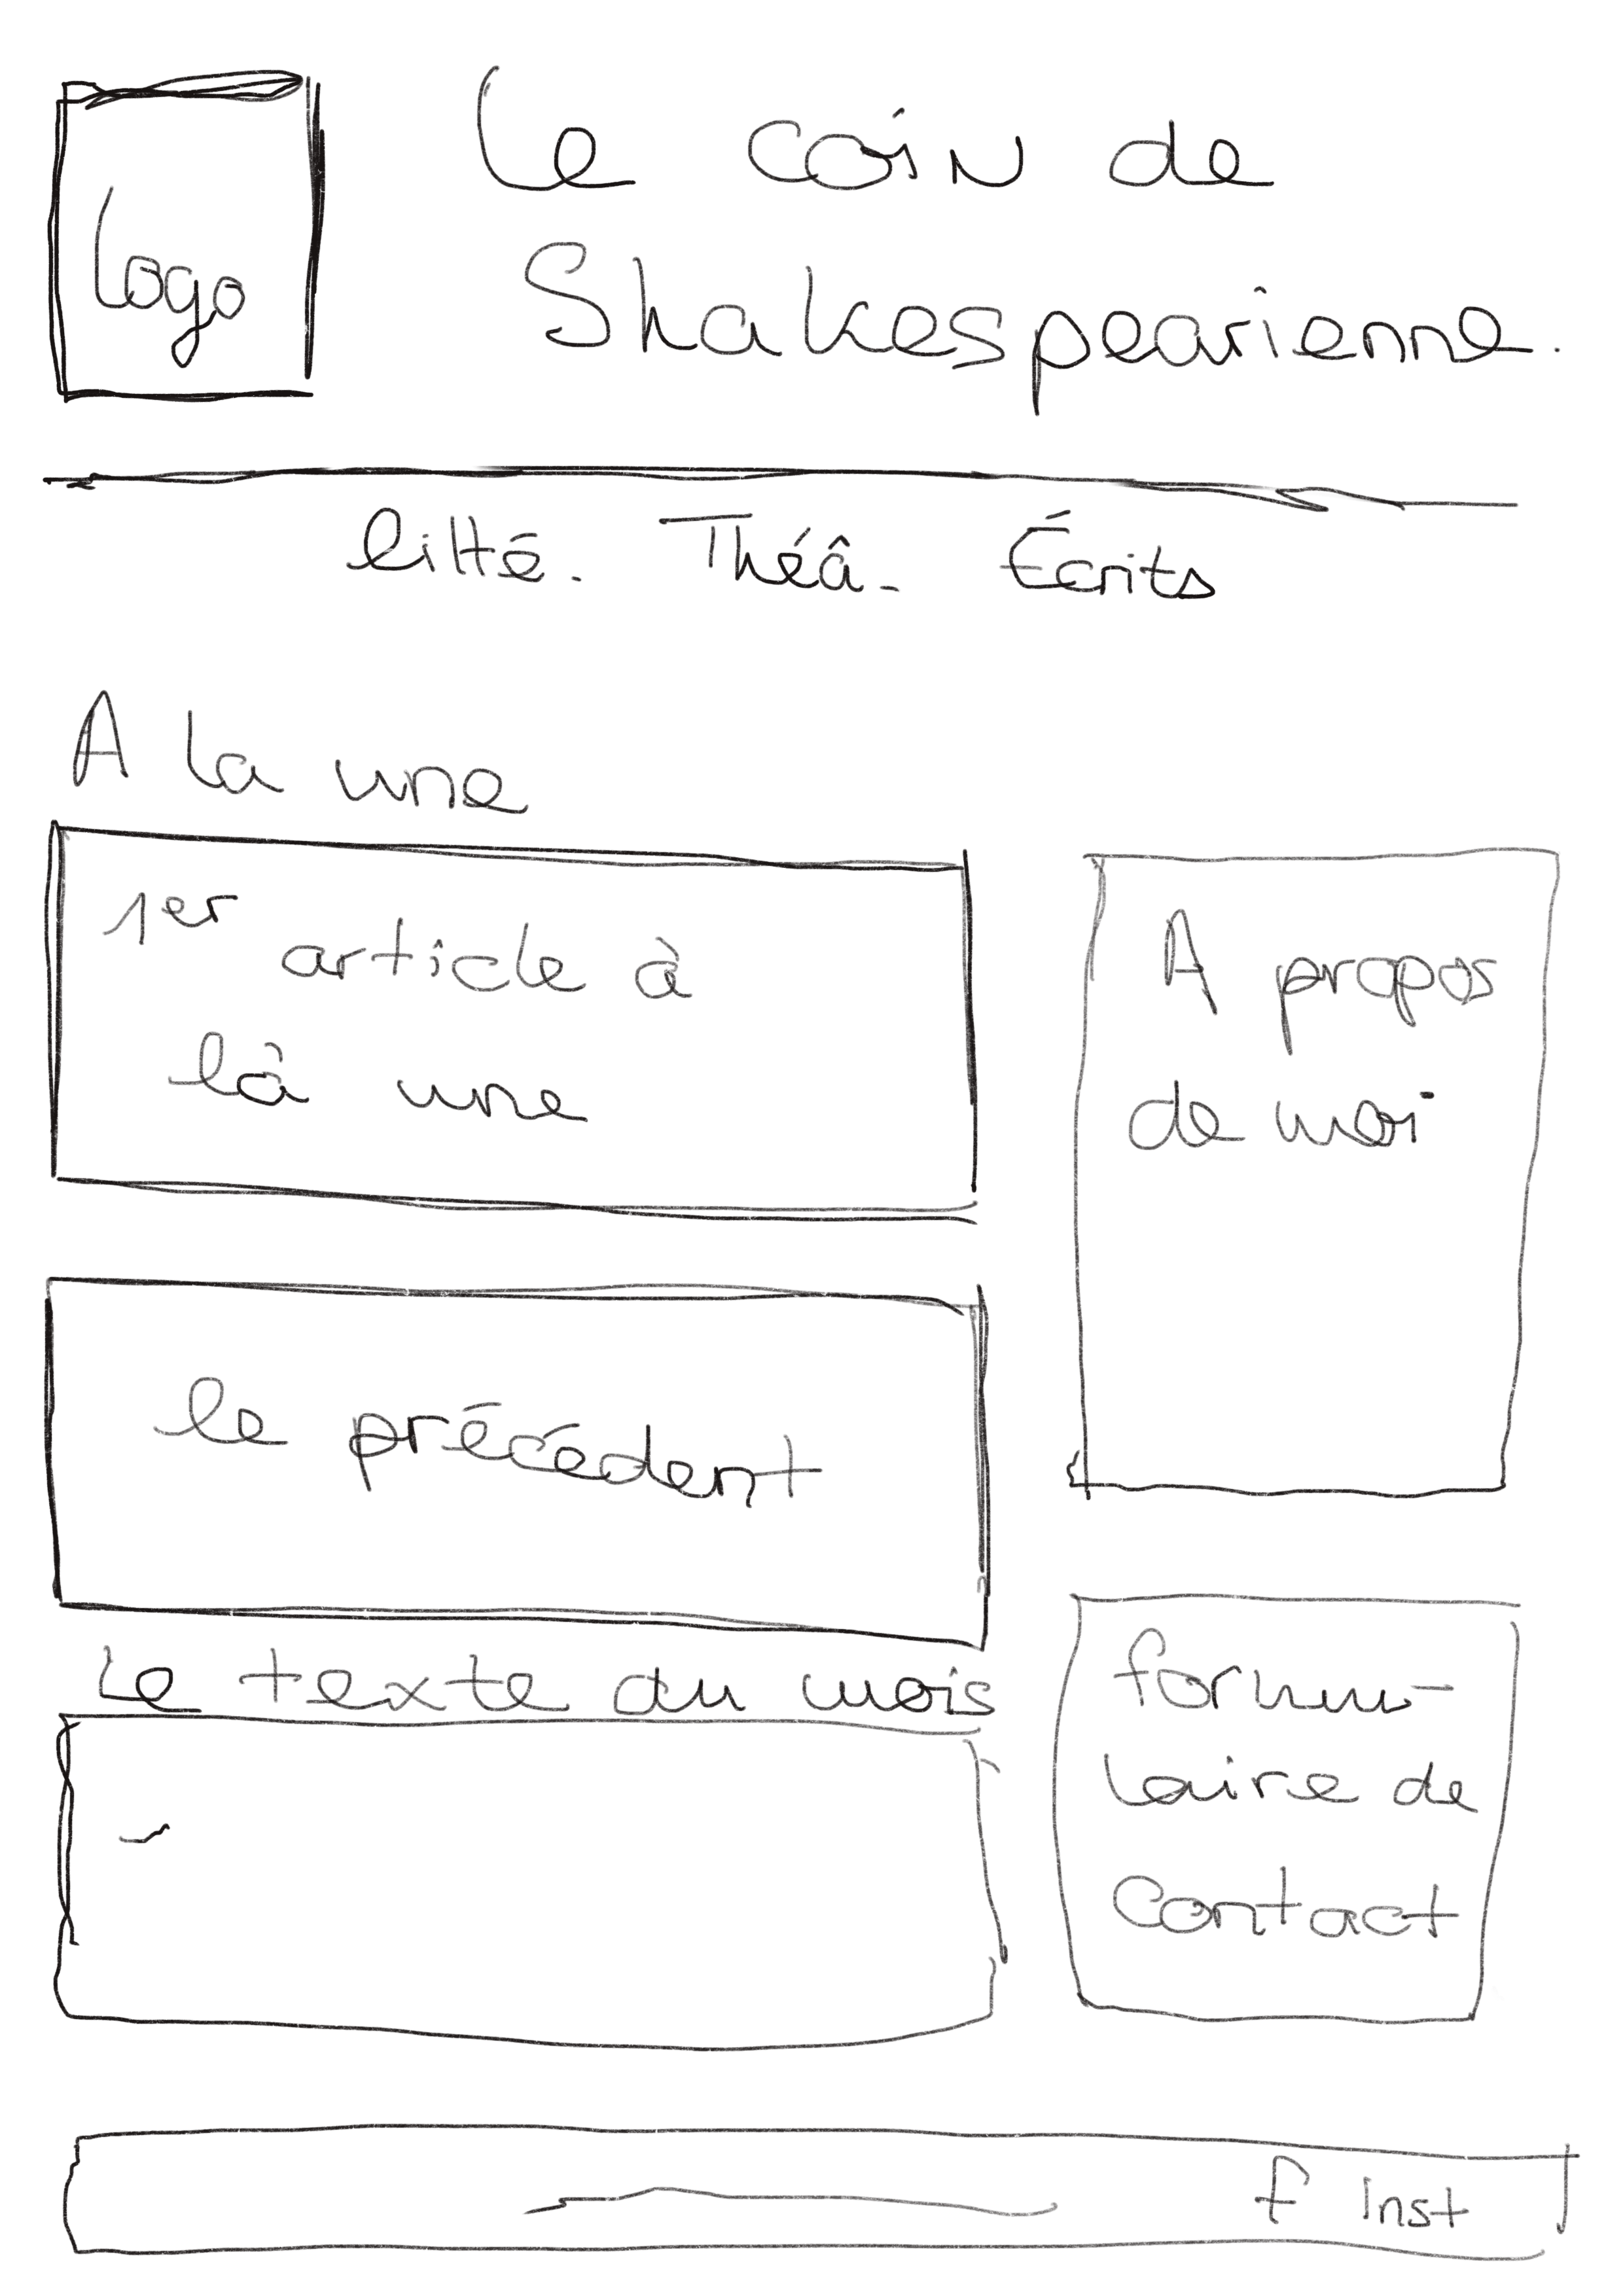 Logo
Le coin de
Shakespearienne.
litté. Théâ- Écrits
A la une
1er article à
là une
le précédent
Le texte du mois
A propos
de moi
formu-
laire de
contact
f inst